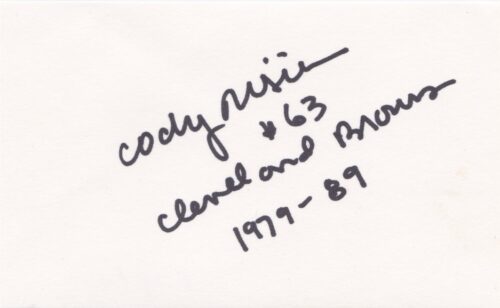 Cody Risien
#63
Cleveland Browns
1979-89